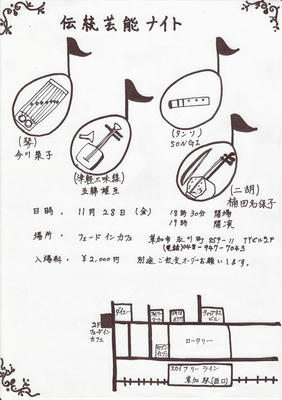 伝統芸能ナイト
(琴)
今川葉子
(津軽三味線)
(タンソ)
SONGI
(二胡)
楠田名保子
日時. 11月28日(金) 18時30分 開場
19時 開演
場所. フェードインカフェ 草加市氷川町859-11 TYビル2F
(電話)048-947-7043
入場料. ¥2,000円 別途ご飲食オーダーお願いします。
ダイエー
2F
フェードイン
カフェ
ロータリー
スカイツリーライン
草加駅(西口)